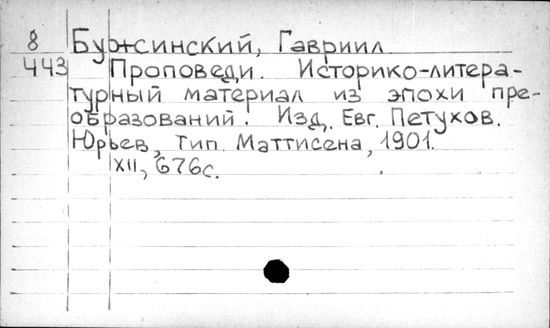 8 Бужсинский, Гавриил
443 Проповеди. Историко-литера-
турный материал из эпохи пре-
образований. Изд. Евг. Петухов.
Юрьев, тип. Маттисена, 1901.
XII, 676с.